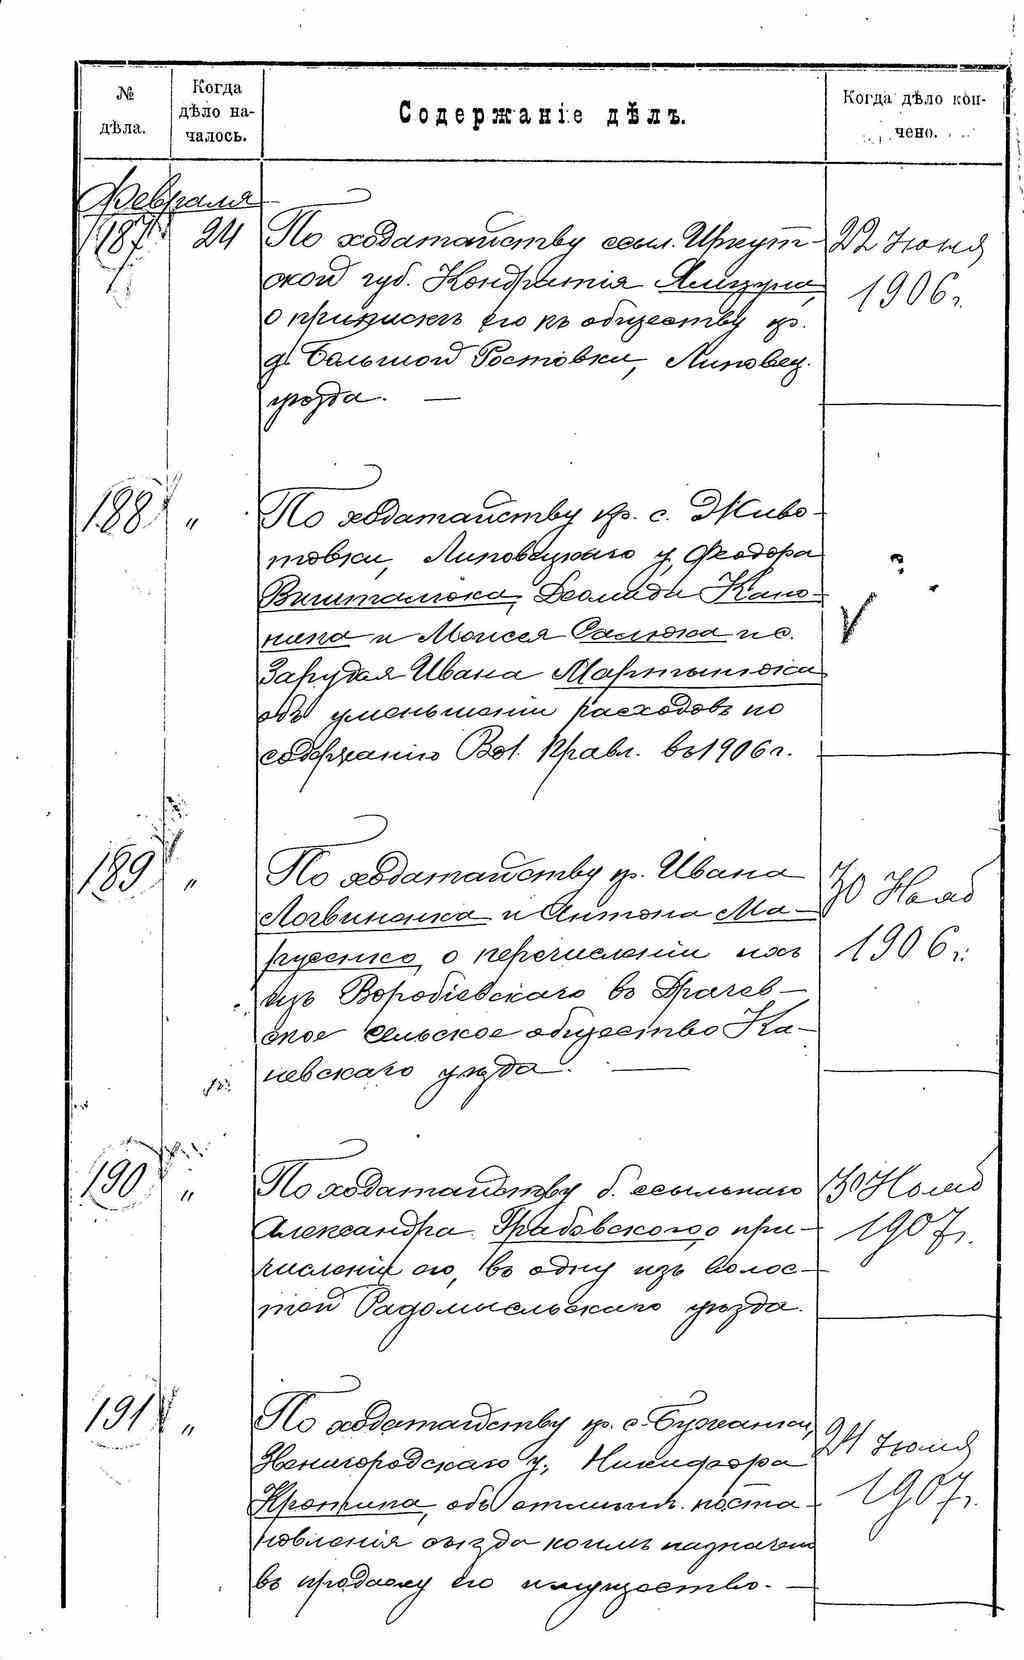 № дѣла.
Когда дѣло на-
чалось.
Содержаніе дѣлъ.
Когда дѣло кон-
чено.
Февраля
187 24 По ходатайству ссыл. Иркут- 22 Июня
ской губ. Кондратія 1906 г.
о припискѣ его къ обществу кр.
д. Большой Ростовки, Липовец.
уѣзда. —
188 " По ходатайству кр. с. Живо-
товки, Липовецкаго у. Феодора
Вишталюка, Деомида Кано-
нина и Моисея Салюка и с.
Зарудья Ивана Мартынюка
объ уменьшеніи расходовъ по
содержанію Вол. Правл. въ 1906 г.
?
189 " По ходатайству кр. Ивана 30 Нояб
Логвиненка и Антона Ма- 1906 г.
о перечисленіи ихъ
изъ Воробіевскаго въ Драчев-
ское сельское общество Ка-
невскаго уѣзда. —
190 " По ходатайству б. ссыльнаго 30 Нояб
Александра Грабовского, о при- 1907 г.
численіи его, въ одну изъ волос-
тей Радомысльскаго уѣзда.
191 " По ходатайству кр. с. Бужанки, 24 Июля
Звенигородскаго у., Никифора 1907 г.
Кротипа, объ отмѣнѣ поста-
новленія съѣзда коимъ назначено
въ продажу его имущество. —